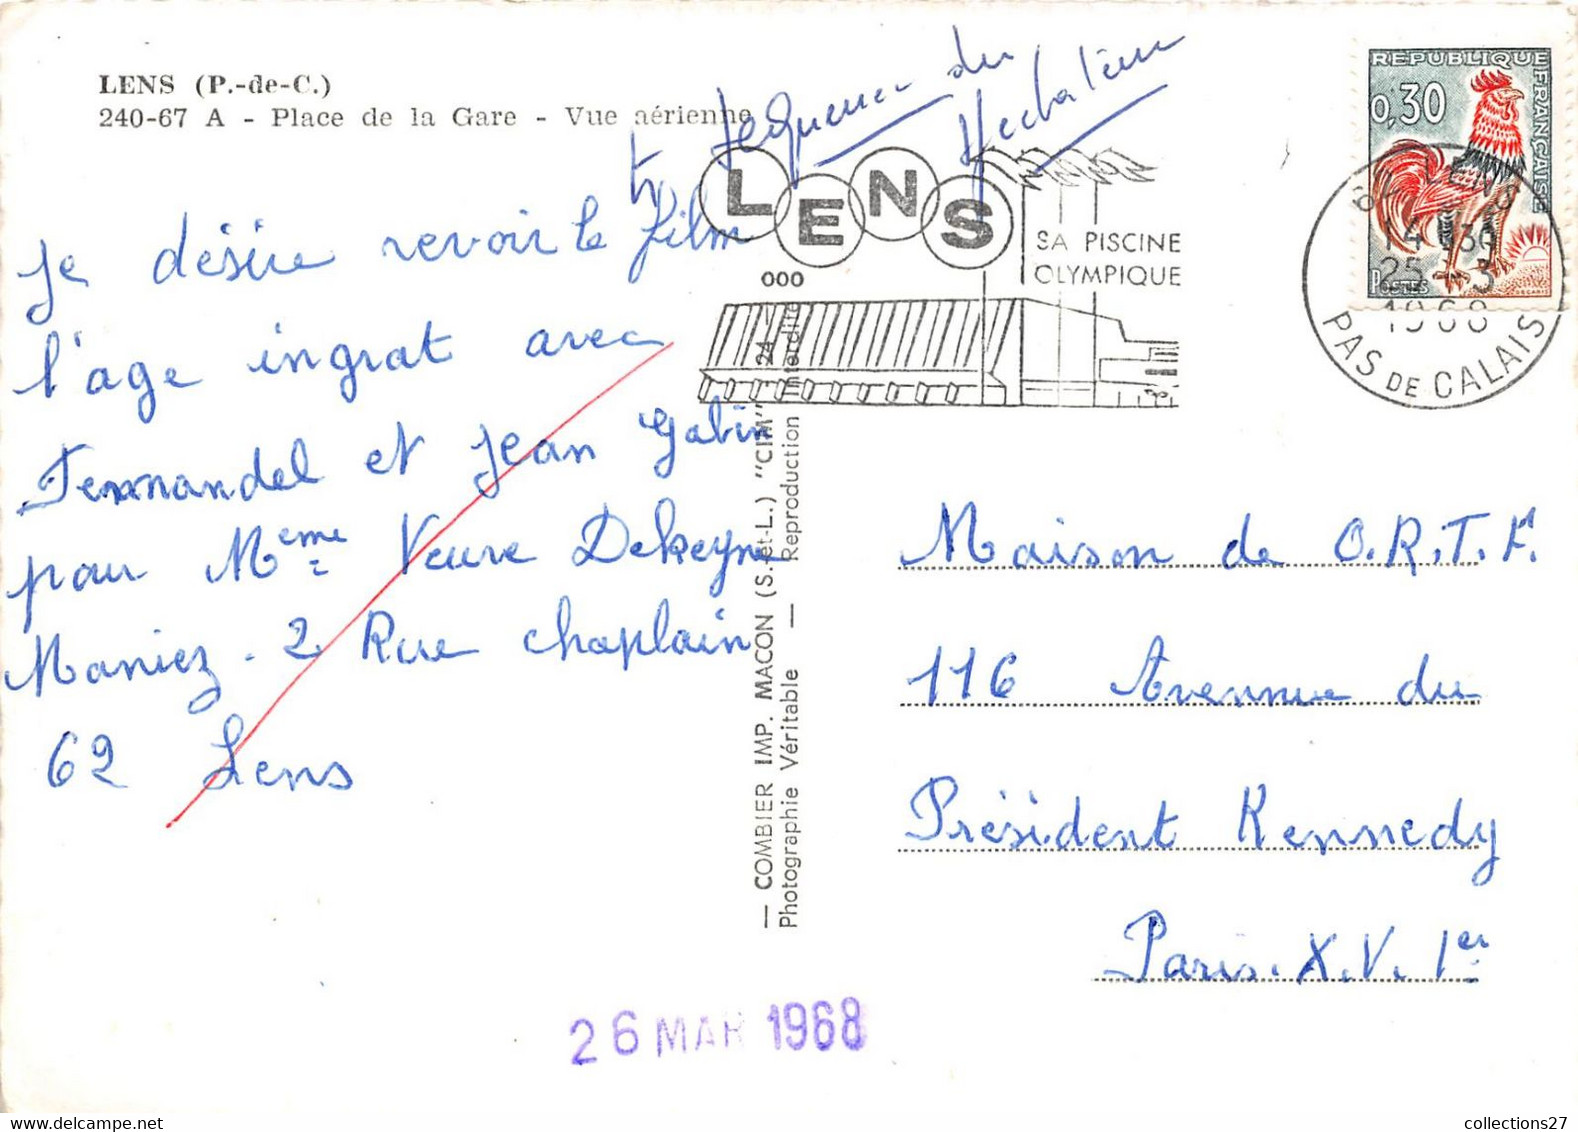 LENS (P.-de-C.)
240-67 A - Place de la Gare - Vue aérienne
du
LENS
SA PISCINE
OLYMPIQUE
REPUBLIQUE FRANÇAISE
0,30
POSTES
DECARIS
LENS
14 30
25-3
1968
PAS DE CALAIS
Je désire revoir le film
l'age ingrat avec
Fernandel et Jean Gabin
pour Meme Veuve Dekeyne
Maniez - 2 Rue chaplain
62 Lens
— COMBIER IMP. MACON (S.-et-L.) "CIM"
Photographie Véritable — Reproduction Interdite
Maison de O.R.T.F.
116 Avennue du
Président Kennedy
Paris. X.V. 1er
26 MAR 1968
collections27